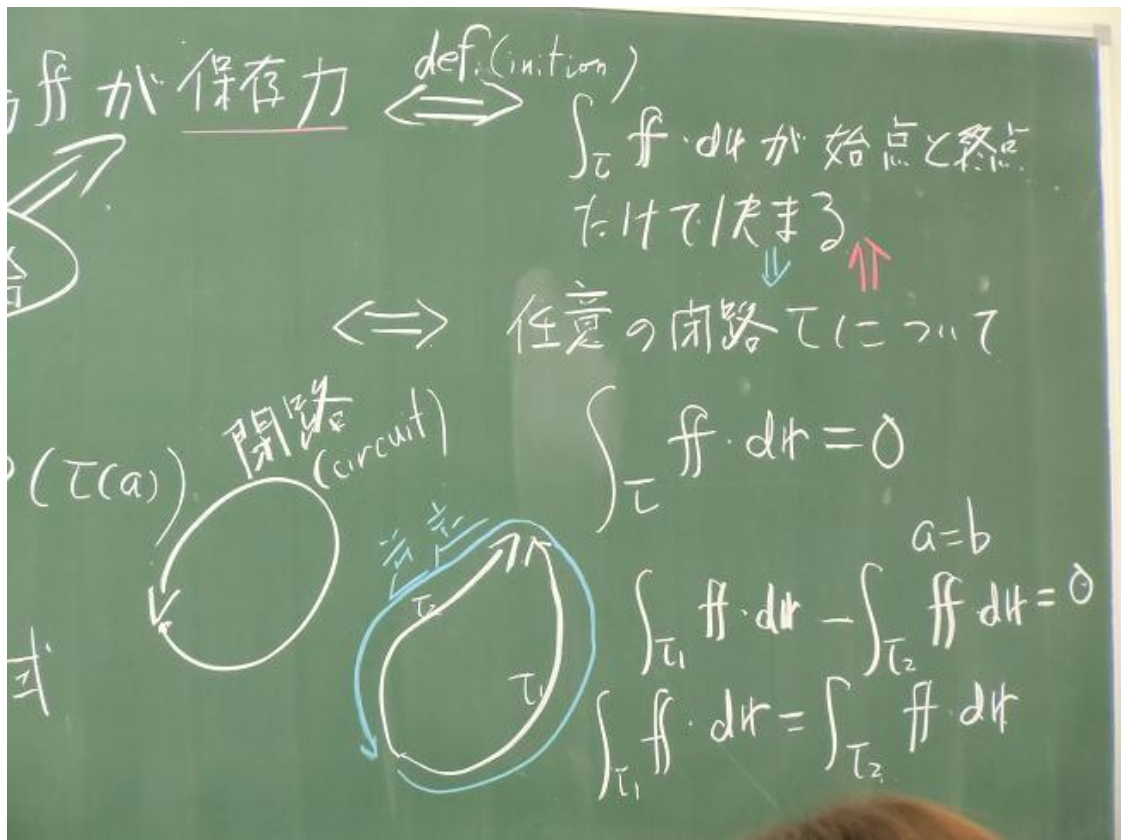 𝕗 が 保存力 ⟺ def.(inition)
∫_τ 𝕗・d𝕣 が 始点と終点
だけで決まる
⇓ ⇑
⟺ 任意の閉路 τ について
∫_τ 𝕗・d𝕣 = 0
閉路
(circuit)
(τ(a))
a=b
τ₂
τ₁
∫_τ₁ 𝕗・d𝕣 − ∫_τ₂ 𝕗・d𝕣 = 0
∫_τ₁ 𝕗・d𝕣 = ∫_τ₂ 𝕗・d𝕣
式